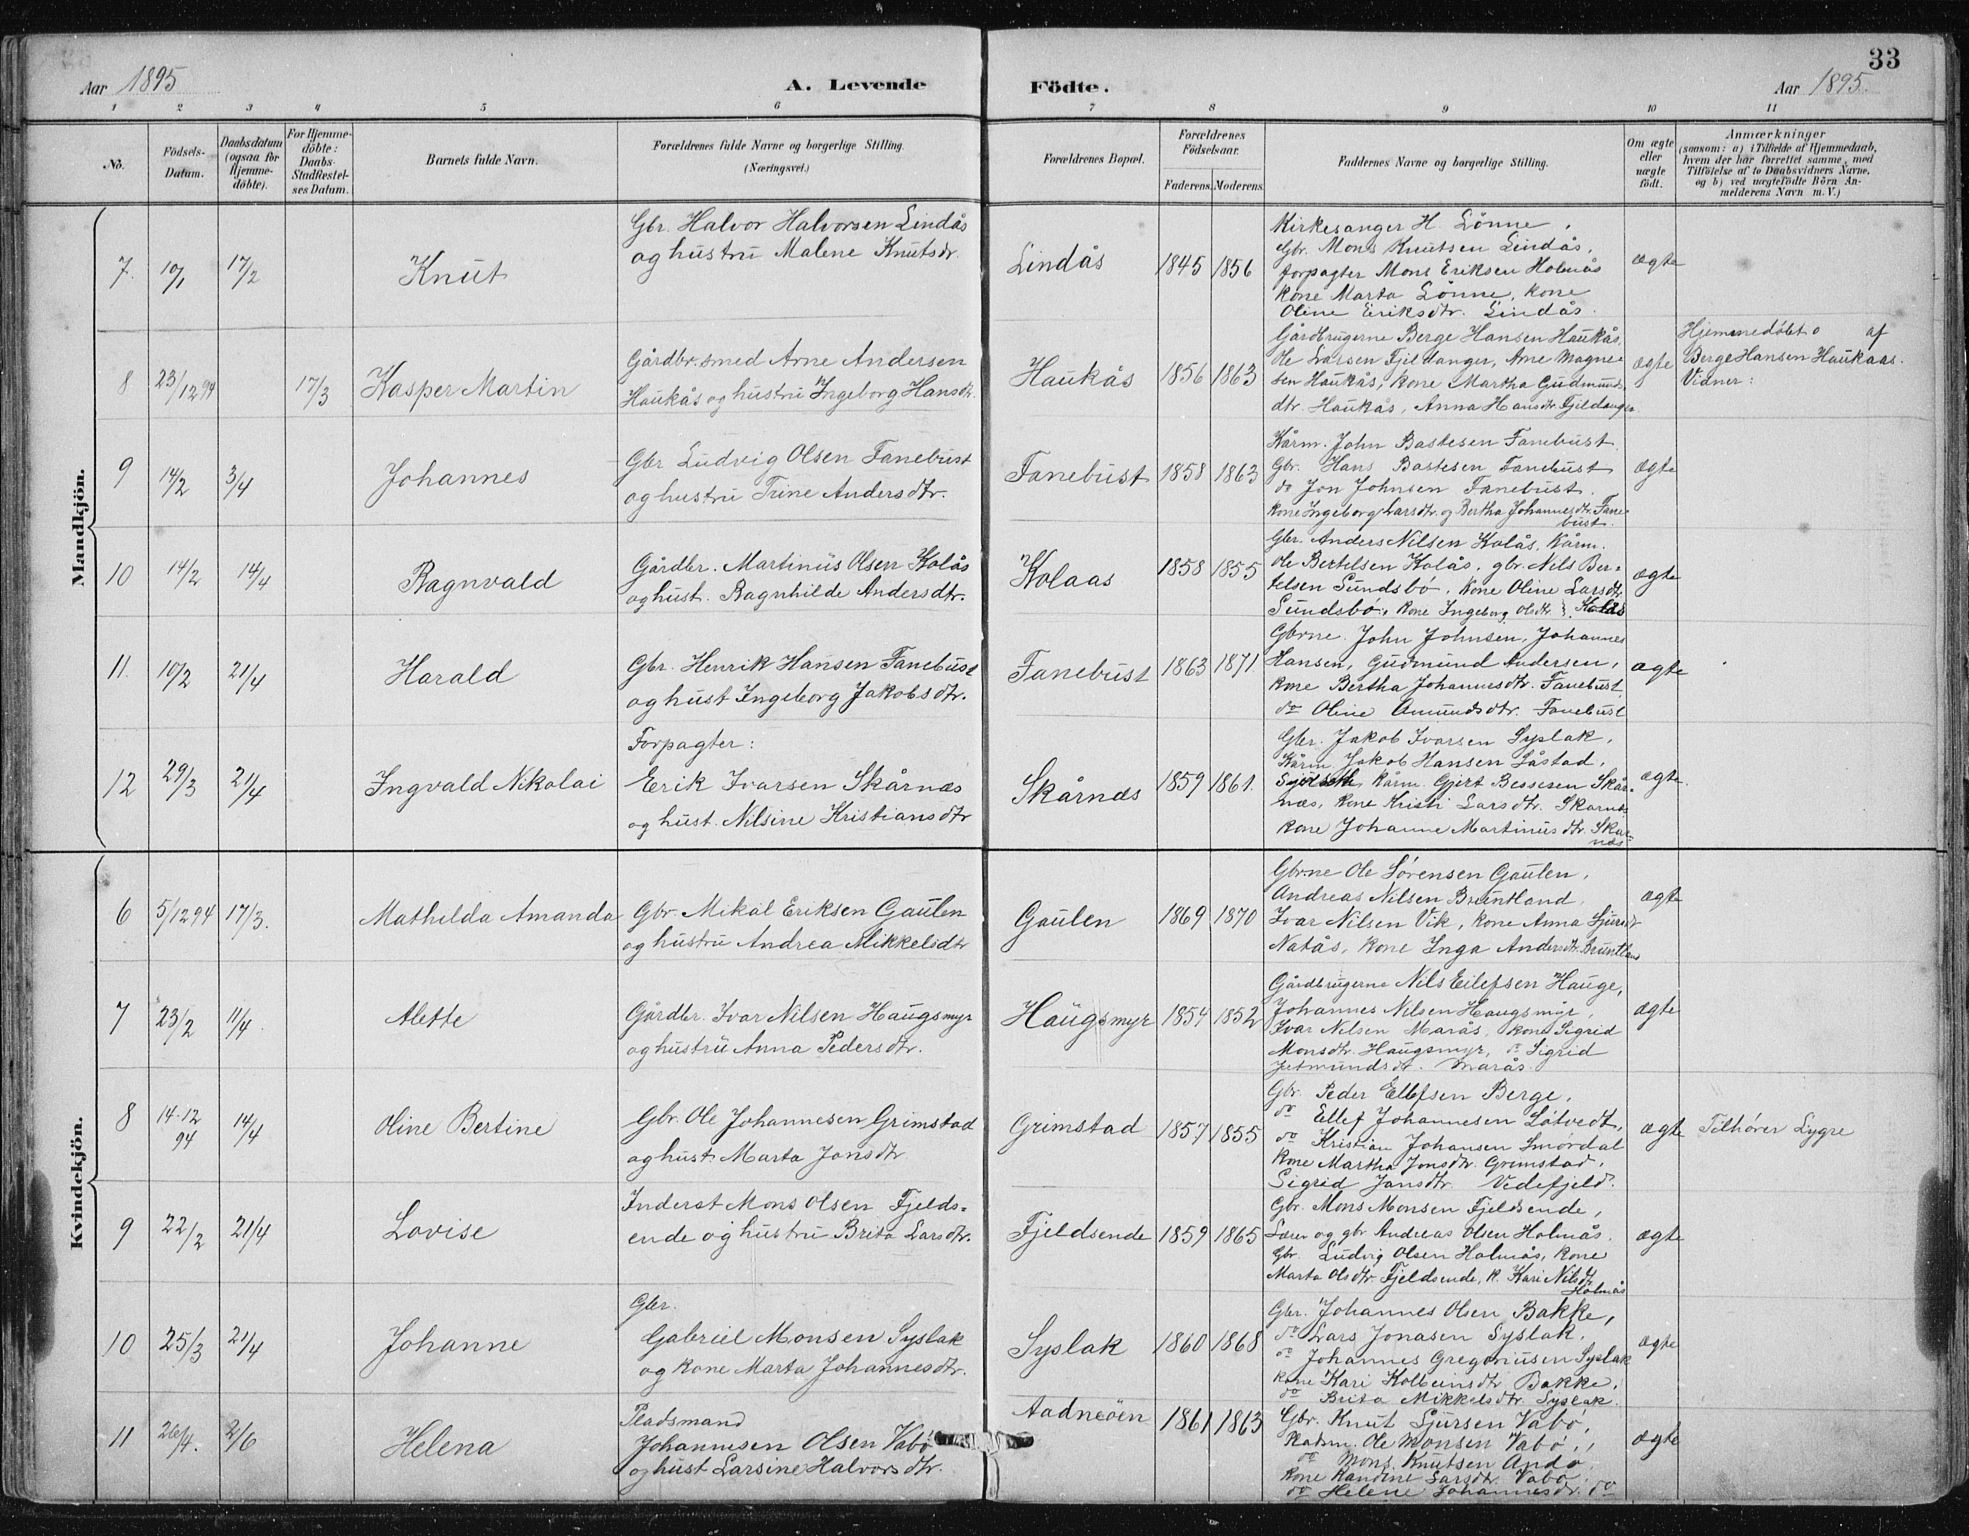 33
Aar 1895
A. Levende Födte.
Aar 1895
1 2 3 4 5 6 7 8 9 10 11
No.
Födsels-Datum.
Daabsdatum (ogsaa for Hjemmedöbte).
For Hjemmedöbte: Daabs-Stadfestelses Datum.
Barnets fulde Navn.
Forældrenes fulde Navne og borgerlige Stilling. (Næringsvei.)
Forældrenes Bopæl.
Forældrenes Födselsaar.
Faderens. Moderens.
Faddernes Navne og borgerlige Stilling.
Om ægte eller nægte födt.
Anmærkninger
(saasom: a) i Tilfælde af Hjemmedaab, hvem der har forrettet samme, med Tilföielse af to Daabsvidners Navne, og b) ved nægtefödte Börn Anmelderens Navn m. V.)
Mandkjön.
7. 10/1 17/2 Knut
Gbr. Halvor Halvorsen Lindås
og hustru Malene Knutsdr.
Lindås 1845 1856
Kirkesanger H Lönne,
Gbr. Mons Knutsen Lindås,
forpagter Mons Eriksen Holmås
kone Marta Lönne, kone
Oline Eriksdtr. Lindås.
ægte
8 23/12 94 17/3 Kasper Martin
Gårdbr. smed Arne Andersen
Haukås og hustru Ingeborg Hansdr.
Haukås 1856 1863
Gårdbrugerne Berge Hansen Haukås,
Ole Larsen Fjeldanger, Arne Magne-
sen Haukås, kone Martha Gudmunds
dtr. Haukås, Anna Hansdtr. Fjeldanger
ægte
Hjemmedöbt af
Berge Hansen Haukaas.
Vidner:
9 14/2 3/4 Johannes
Gbr Ludvig Olsen Fanebust
og hustru Trine Andersdtr.
Fanebust 1858 1863
Kårm. John Bastesen Fanebust
Gbr. Hans Bastesen Fanebust
do Jon Johnsen Fanebust.
kone Ingeborg Larsdtr. og Bertha Johannesdtr. Fane-
bust.
ægte
10 14/2 14/4 Ragnvald
Gårdbr. Martinus Olsen Kolås
og hust. Ragnhilde Andersdtr.
Kolaas 1858 1855
Gbr. Anders Nilsen Kolås, Kårm.
Ole Bertelsen Kolås, gbr. Nils Ber-
telsen Sundsbö, kone Oline Larsdtr.
Sundsbö, kone Ingeborg Olsdtr. Kolås
ægte
11. 10/2 21/4 Harald
Gbr. Henrik Hansen Fanebust
og hust Ingeborg Jakobsdtr.
Fanebust 1863 1871.
Gbrne. John Johnsen, Johannes
Hansen, Gudmund Andersen,
kone Bertha Johannesdtr. Fanebust
do Oline Amundsdtr. Fanebust
ægte
12 29/3 21/4 Ingvald Nikolai
Forpagter:
Erik Ivarsen Skårnæs
og hust. Nilsine Kristiansdtr
Skårnæs 1859 1861.
Gbr. Jakob Ivarsen Syslak,
Kårm Jakob Hansen Låstad,
Kårm. Gjert Bessesen Skår-
næs, kone Kristi Larsdtr. Skarnæs
kone Johanne Martinusdtr. Skar-
næs
ægte.
Kvindekjön.
6 5/12 94 17/3. Mathilda Amanda
Gbr. Mikal Eriksen Gaulen
og hustru Andrea Mikkelsdtr
Gaulen 1869 1870
Gbrne Ole Sörensen Gaulen,
Andreas Nilsen Bruntland,
Ivar Nilsen Vik, kone Anna Sjursdr
Natås, kone Inga Andersdtr. Bruntland
ægte
7 23/2 11/4. Alette
Gårdbr. Ivar Nilsen Haugsmyr
og hustru Anna Pedersdtr.
Haugsmyr 1854 1852
Gårdbrugerne Nils Eilefsen Hauge,
Johannes Nilsen Haugsmyr,
Ivar Nilsen Marås, kone Sigrid
Monsdtr. Haugsmyr, do Sigrid
Jetmundsdt. Marås.
ægte
8 14-12 94 14/4 Oline Bertine
Gbr. Ole Johannesen Grimstad
og hust. Marta Jonsdtr
Grimstad 1857 1855
Gbr. Peder Ellefsen Berge,
do Ellef Johannesen Lötvedt,
do Kristian Johansen Smördal
kone Martha Jonsdtr. Grimstad,
Sigrid Jonsdtr Vedefjeld.
ægte
Tilhörer Lygre
9 22/2 21/4 Lovise
Inderst Mons Olsen Fjelds-
ende og hustru Brita Larsdtr.
Fjeldsende 1859 1865
Gbr. Mons Monsen Fjeldsende,
Lærer og gbr Andreas Olsen Holmås.
Gbr. Ludvig Olsen Holmås, kone
Marta Olsdtr Fjeldsende, k. Kari Nilsdtr
Holmås
ægte
10 25/3 21/4 Johanne
Gbr.
Gabriel Monsen Syslak
og kone Marta Johannesdtr.
Syslak 1860 1868
Gbr. Johannes Olsen Bakke,
do Lars Jonasen Syslak,
do Johannes Gregoriusen Syslak
kone Kari Kolbeinsdtr Bakke,
do Brita Mikkelsdtr. Syslak.
ægte
11 26/4. 2/6 Helena
Pladsmand
Johannesen Olsen Vabö
og hust Larsine Halvorsdtr.
Aadneöen 1861 1863
Gbr. Knut Sjursen Vabö,
Pladsm. Ole Monsen Vabö,
do Mons Knutsen Andö
kone Kandine Larsdtr Vabö.
do Helene Johannesdr. do
ægte